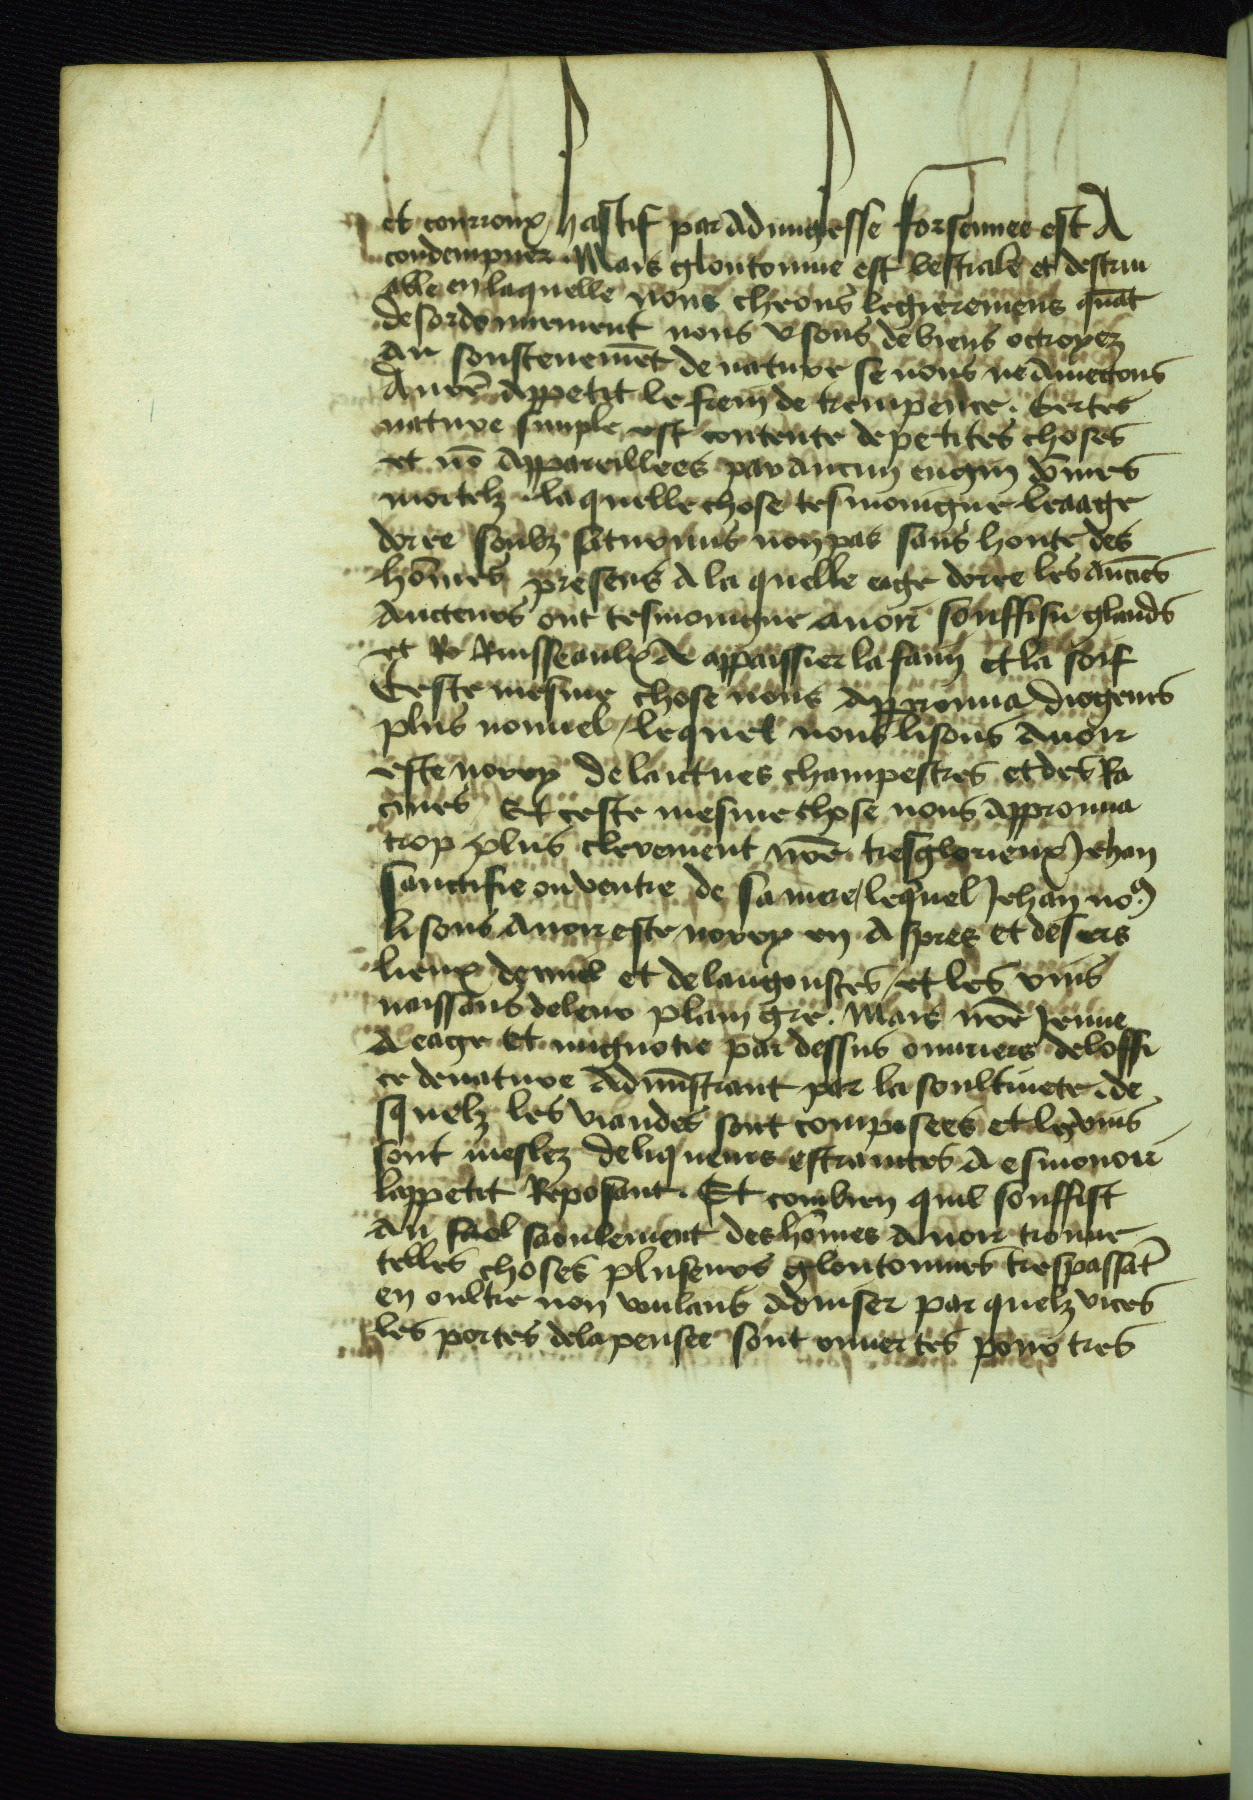 et courroux / hastif par adiungesse forsennee est A
condempner. Mais gloutonnie est bestiale et destrui
able en laquelle nous cheons legieremens quāt
desordonnement nous vsons de biens octroyez
Au soustenemēt de nature se nous ne Amectons
A nrē Appetit le frein de trempence. Certes
nature simple est contente de petites choses
et nō Appareillees par aucun engin dōmes
mortelz . laquelle chose tesmoingne leaage
doree soubz saturnus non pas sans honte des
hōmes presens A la quelle eage doree les Anciēs
Aucteurs ont tesmoingne auoir souffisu glands
et Ro Ruisseaulx A appaissier la faim et la soif
Ceste mesme chose nous Approuua diogenes
plus nouuel / lequel nous lisons Auoir
este norry de laictues champestres et des Ra
cines / Et ceste mesme chose nous approuua
trop plus clerement nrē tresglorieux Jehan
sanctifie ou ventre de sa mere / lequel Jehan no9
lisons Auoir este norry en Aspres et desers
lieux de miel et de langoustes / et les vins
naissans de leur plain gre. Mais nrē Jenne
A eage Et mignotie par dessus ouuriers de loffi
ce de nature Adminīstrant par la soultiuete. de
squelz les viandes sont composees et les vins
sont meslez de liqueurs estranges A esmouoir
lappetit Reposant. Et combien quil souffist
Au fael saoulement des hōmes Auoir trouue
telles choses pluseurs gloutonnies trespassāt
en oultre non voulans Aduiser par quelz vices
les portes de la pensee sont ouuertes pour tres